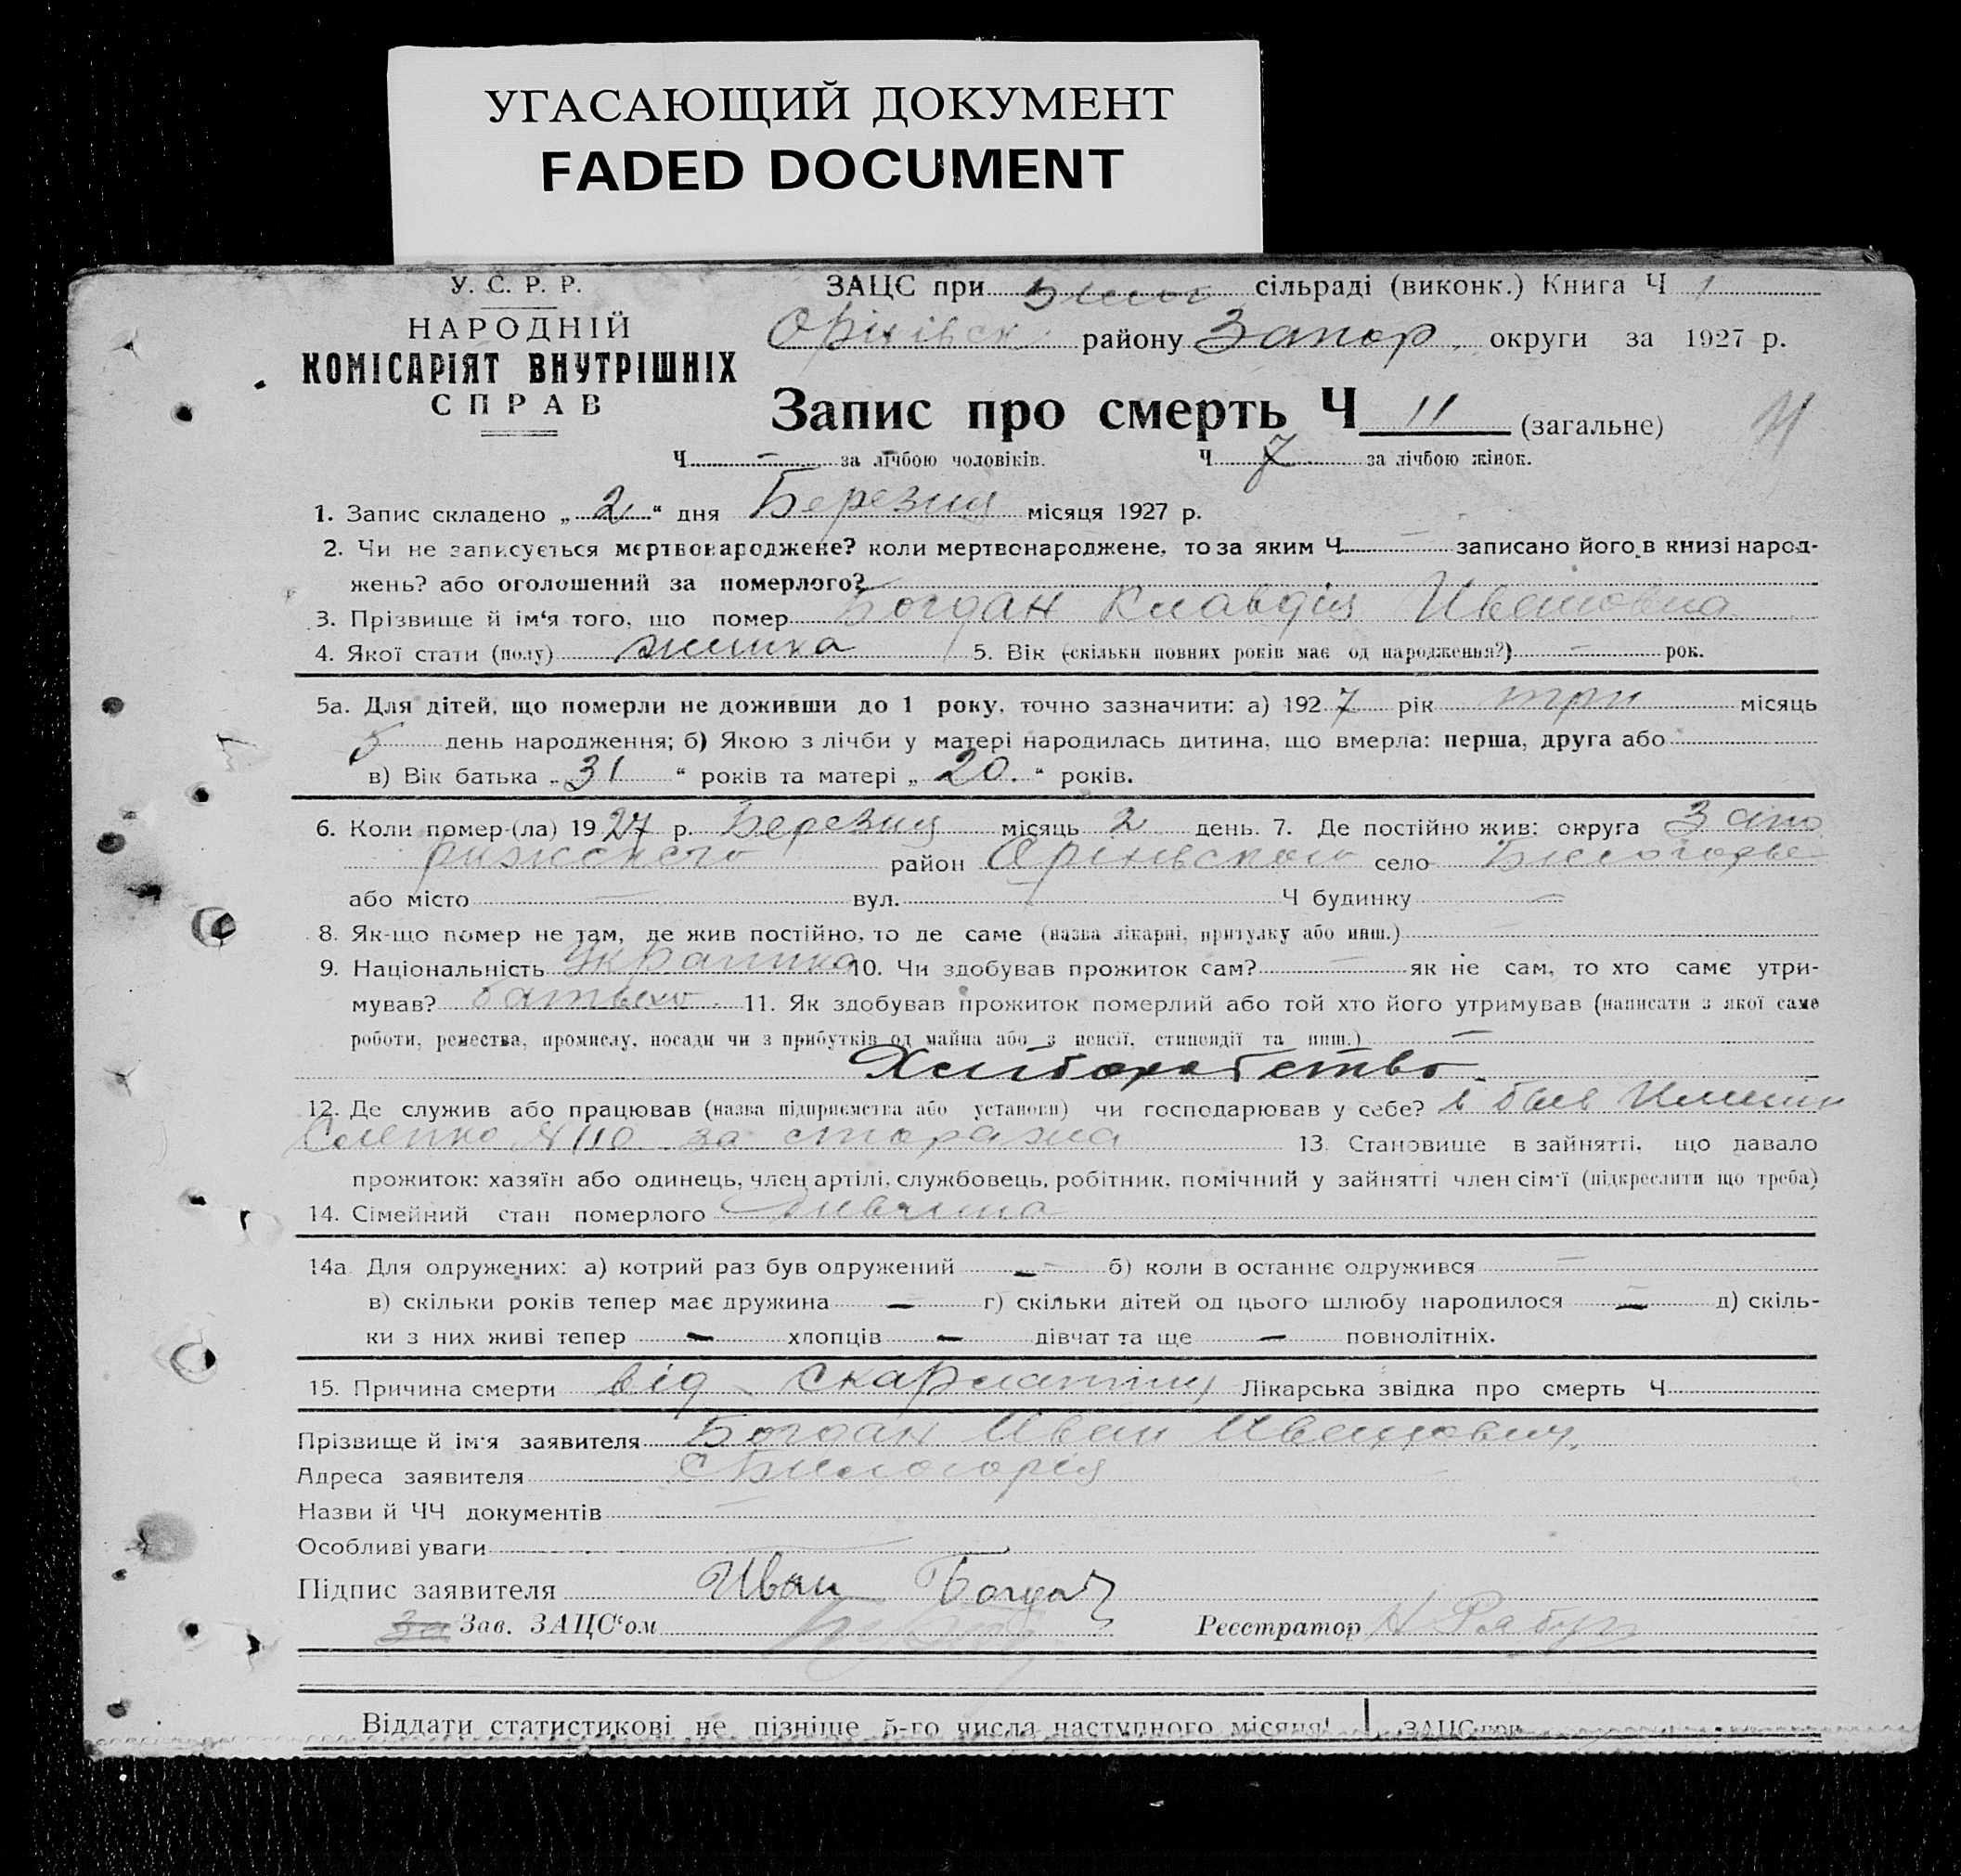 УГАСАЮЩИЙ ДОКУМЕНТ
FADED DOCUMENT
У. С. Р. Р.
НАРОДНІЙ
КОМІСАРІЯТ ВНУТРІШНІХ
СПРАВ
ЗАЦС при сільраді (виконк.) Книга Ч 1
Оріхівськ. району Запор. округи за 1927 р.
Запис про смерть Ч 11 (загальне)
11
Ч. – за лічбою чоловіків. Ч. 7 за лічбою жінок.
1. Запис складено „ 2 “ дня Березня місяця 1927 р.
2. Чи не записується мертвонароджене? коли мертвонароджене, то за яким Ч. – записано його в книзі народ-
жень? або оголошений за померлого?
3. Прізвище й ім‘я того, що помер Богдан Клавдія Ивановна
4. Якої стати (полу) жинка 5. Вік (скільки повних років має од народження?) – рок.
5а. Для дітей, що померли не доживши до 1 року, точно зазначити: а) 1927 рік три місяць
5 день народження; б) Якою з лічби у матері народилась дитина, що вмерла: перша, друга або
в) Вік батька „ 31 “ років та матері „ 20. “ років.
6. Коли помер-(ла) 1927 р. Березня місяць 2 день. 7. Де постійно жив: округа Запо
рижского район Оріхівского село
або місто – вул. – Ч будинку –
8. Як-що помер не там, де жив постійно, то де саме (назва лікарні, притулку або инш.)
9. Національність Украинка 10. Чи здобував прожиток сам? – як не сам, то хто саме утри-
мував? батько. 11. Як здобував прожиток померлий або той хто його утримував (написати з якої саме
роботи, ремества, промислу, посади чи з прибутків од майна або з пенсії, стипендії та инш.) –
Хлиборобство
12. Де служив або працював (назва підприємства або установи) чи господарював у себе?
за сторожа 13. Становище в зайнятті, що давало
прожиток: хазяїн або одинець, член артілі, службовець, робітник, помічний у зайнятті член сім‘ї (підкреслити що треба)
14. Сімейний стан померлого дивчина
14а Для одружених: а) котрий раз був одружений – б) коли в останнє одружився –
в) скільки років тепер має дружина – г) скільки дітей од цього шлюбу народилося – д) скіль-
ки з них живі тепер – хлопців – дівчат та ще – повнолітніх.
15. Причина смерти від скарлатини Лікарська звідка про смерть Ч
Прізвище й ім‘я заявителя Богдан Иван Иванович.
Адреса заявителя с Билогорія
Назви й ЧЧ документів –
Особливі уваги
Підпис заявителя Иван Богдан
За Зав. ЗАЦС‘ом Реєстратор
Віддати статистикові не пізніше 5-го числа наступного місяця!